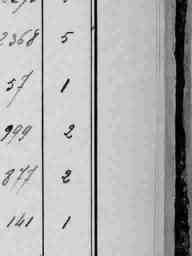 2368 5
57 1
999 2
877 2
141 1